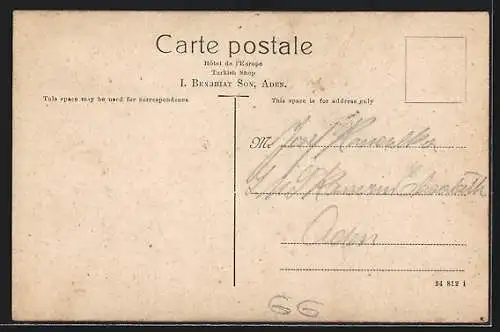 Carte postale
Hôtel de l'Europe
Turkish Shop
I. Benghiat Son, Aden.
This space may be used for correspondence
This space is for address only
M. Josef Kowalka
Aden
24 812 1
66